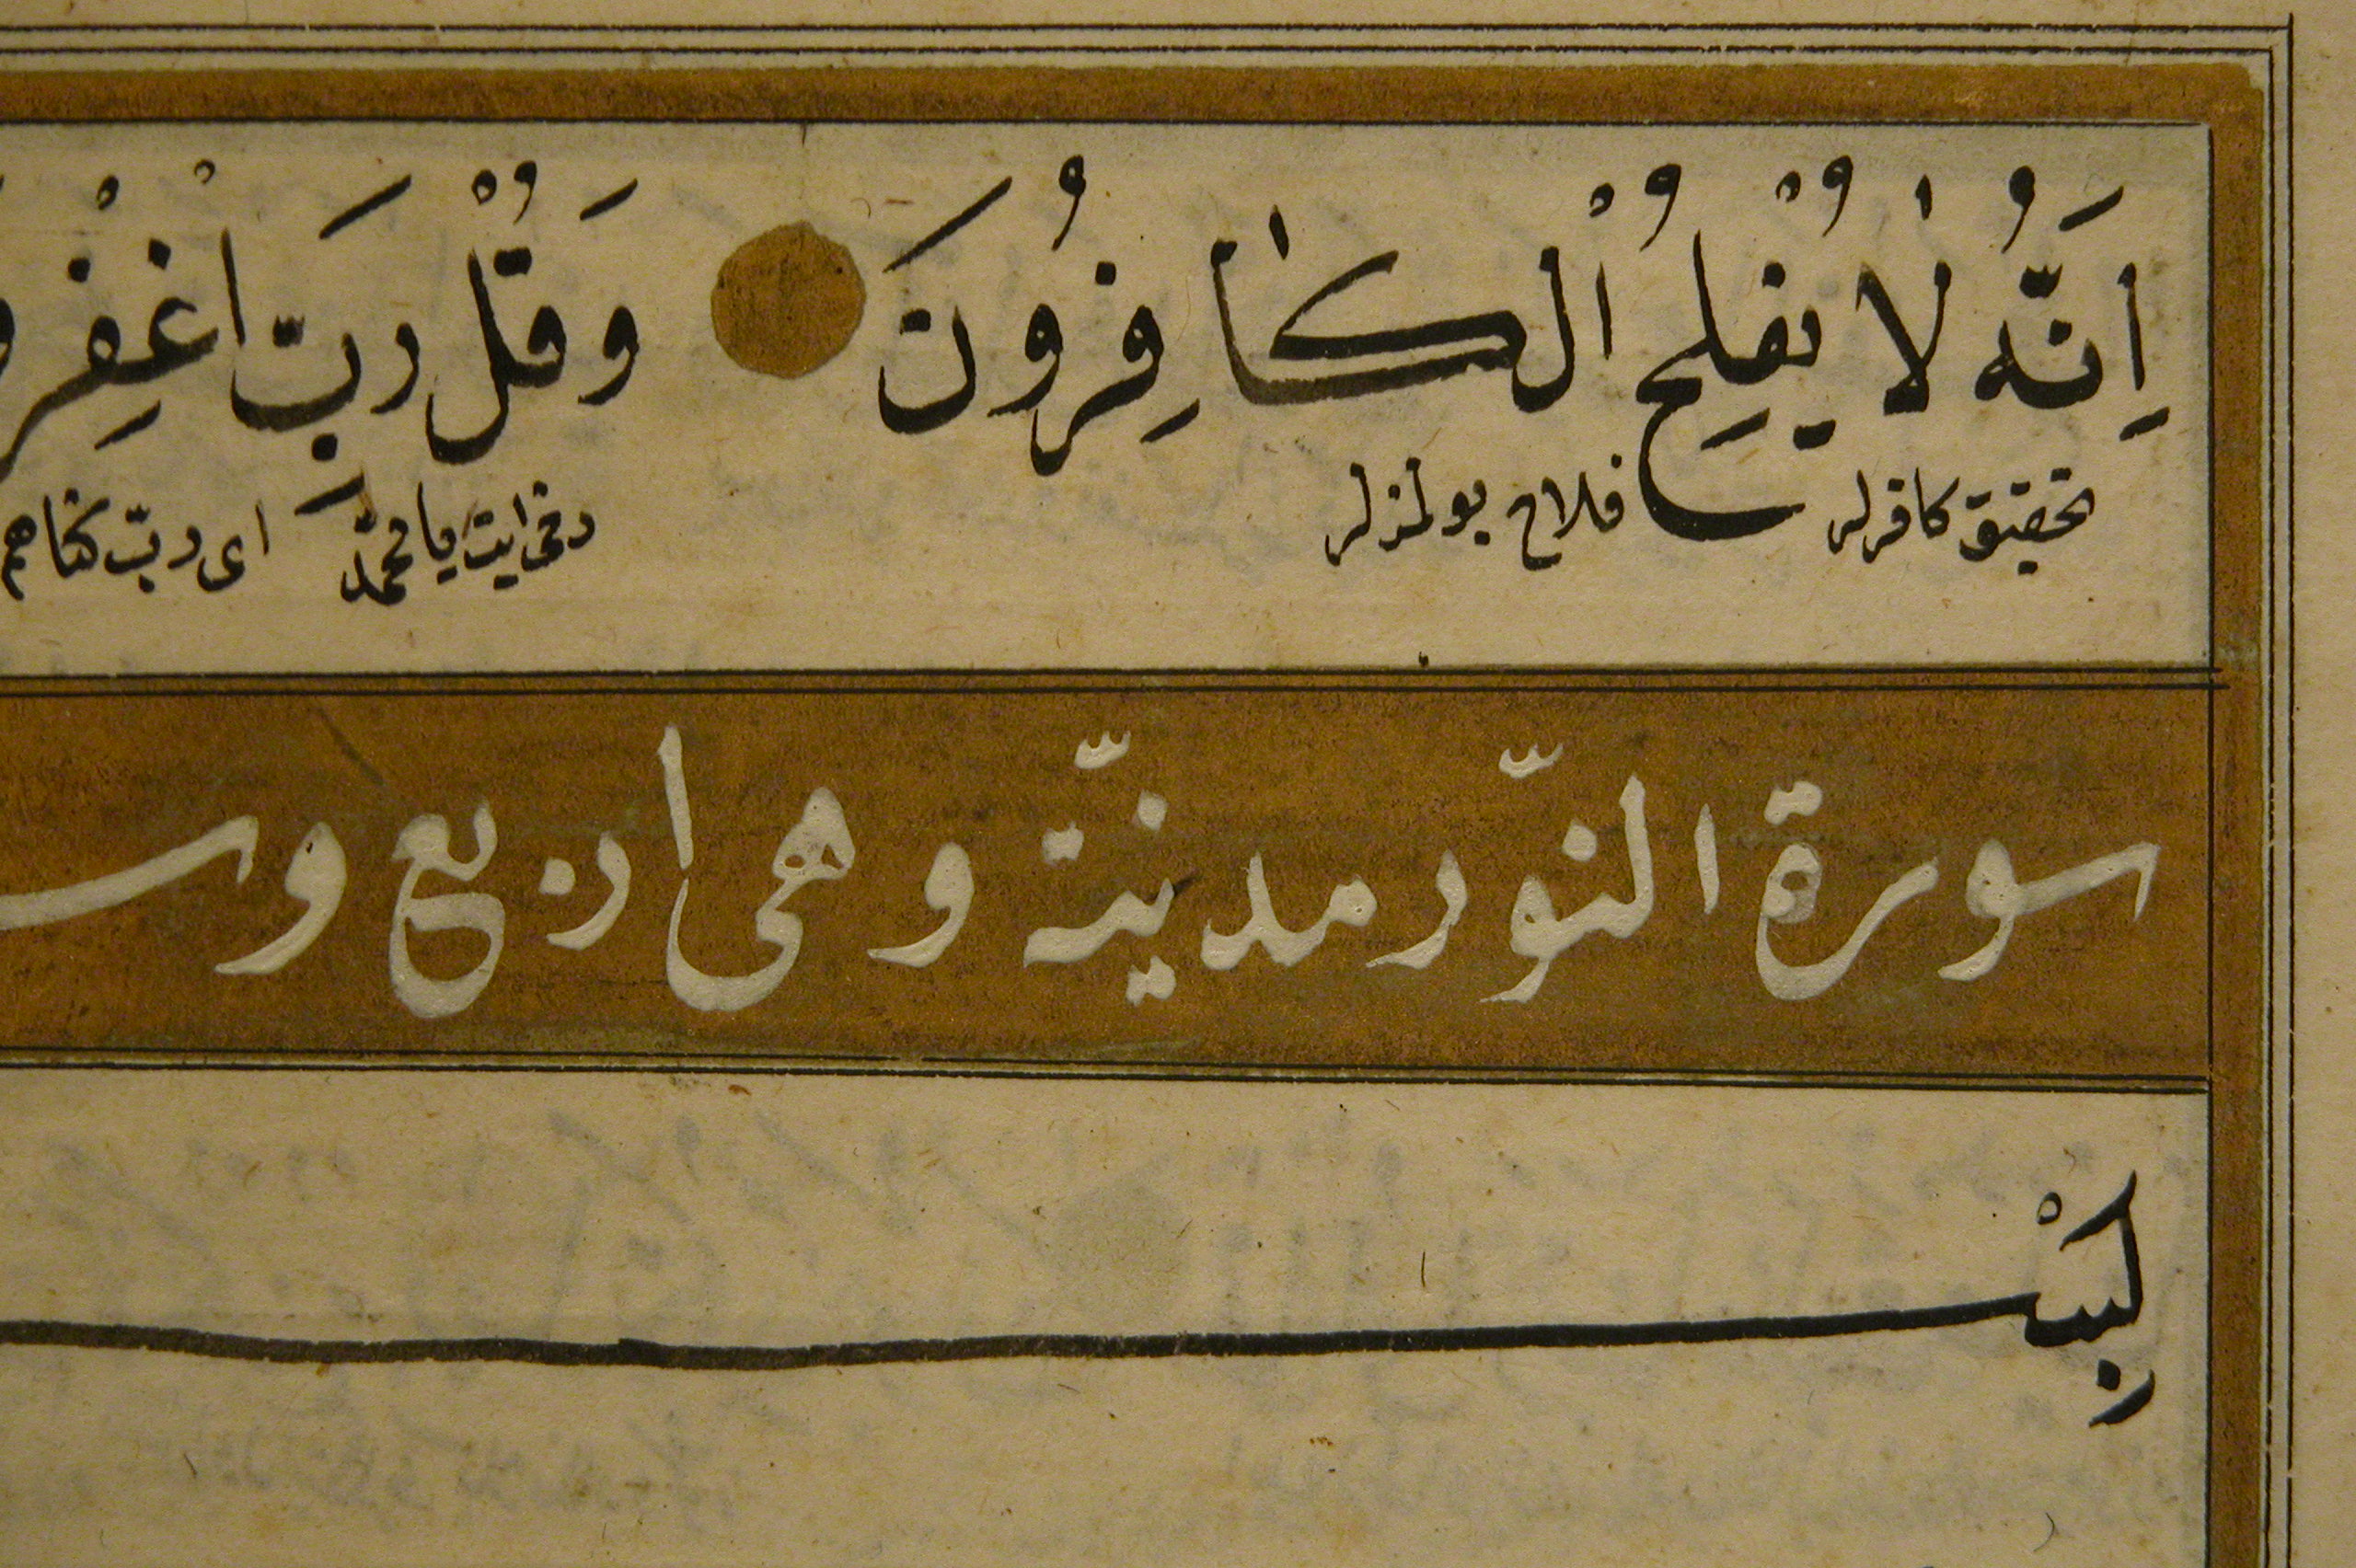 اِنَّهُ لَا يُفْلِحُ الْكَافِرُونَ وَقُلْ رَبِّ اغْفِرْ
تحقيق كافرلر فلاح بولمزلر دخى ايت يا محمّد اى ربّ
سورة النّور مدنيّة وهى اربع و
بِسْــ